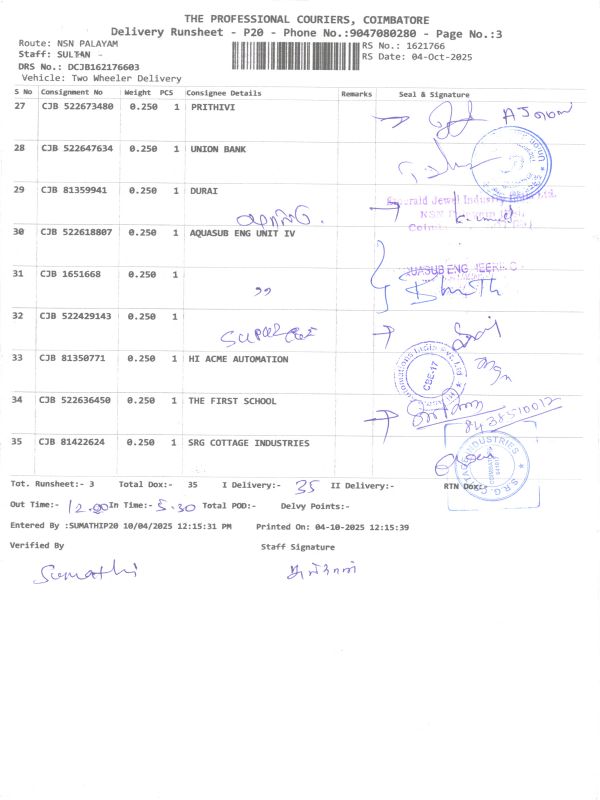 THE PROFESSIONAL COURIERS, COIMBATORE
Delivery Runsheet - P20 - Phone No.:9047080280 - Page No.:3
Route: NSN PALAYAM
RS No.: 1621766
Staff: SULTAN -
RS Date: 04-Oct-2025
DRS No.: DCJB162176603
Vehicle: Two Wheeler Delivery
S No Consignment No Weight PCS Consignee Details Remarks Seal & Signature
27 CJB 522673480 0.250 1 PRITHIVI
28 CJB 522647634 0.250 1 UNION BANK
29 CJB 81359941 0.250 1 DURAI
Emerald Jewel Industry India Ltd.
30 CJB 522618807 0.250 1 AQUASUB ENG UNIT IV
31 CJB 1651668 0.250 1
32 CJB 522429143 0.250 1
33 CJB 81350771 0.250 1 HI ACME AUTOMATION
CBE-17
34 CJB 522636450 0.250 1 THE FIRST SCHOOL
8438510012
35 CJB 81422624 0.250 1 SRG COTTAGE INDUSTRIES
S.R.G. COTTAGE INDUSTRIES
Tot. Runsheet:- 3 Total Dox:- 35 I Delivery:- 35 II Delivery:- RTN Dox:-
Out Time:- 12.00 In Time:- 5.30 Total POD:- Delvy Points:-
Entered By :SUMATHIP20 10/04/2025 12:15:31 PM Printed On: 04-10-2025 12:15:39
Verified By Staff Signature
Sumathi